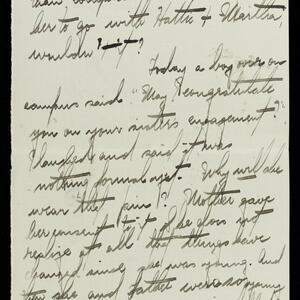 than
her to go with Hattie & Martha,
wouldn't it?
Today a boy over on
campus said "May I congratulate
you on your sisters engagement?"
I laughed and said it was
nothing formal yet. Why will she
wear the pin? Mother gave
her consent but she does not
realize at all that things have
changed since she was young. And
she and father were so young